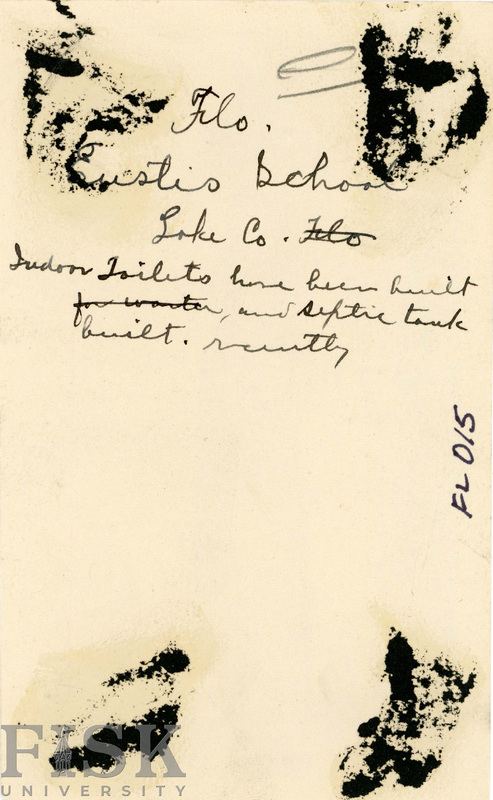 Flo.
Eustis School
Lake Co. Flo
Indoor Toilets have been built
for , and septic tank
built. recently
FL 015
FISK
UNIVERSITY